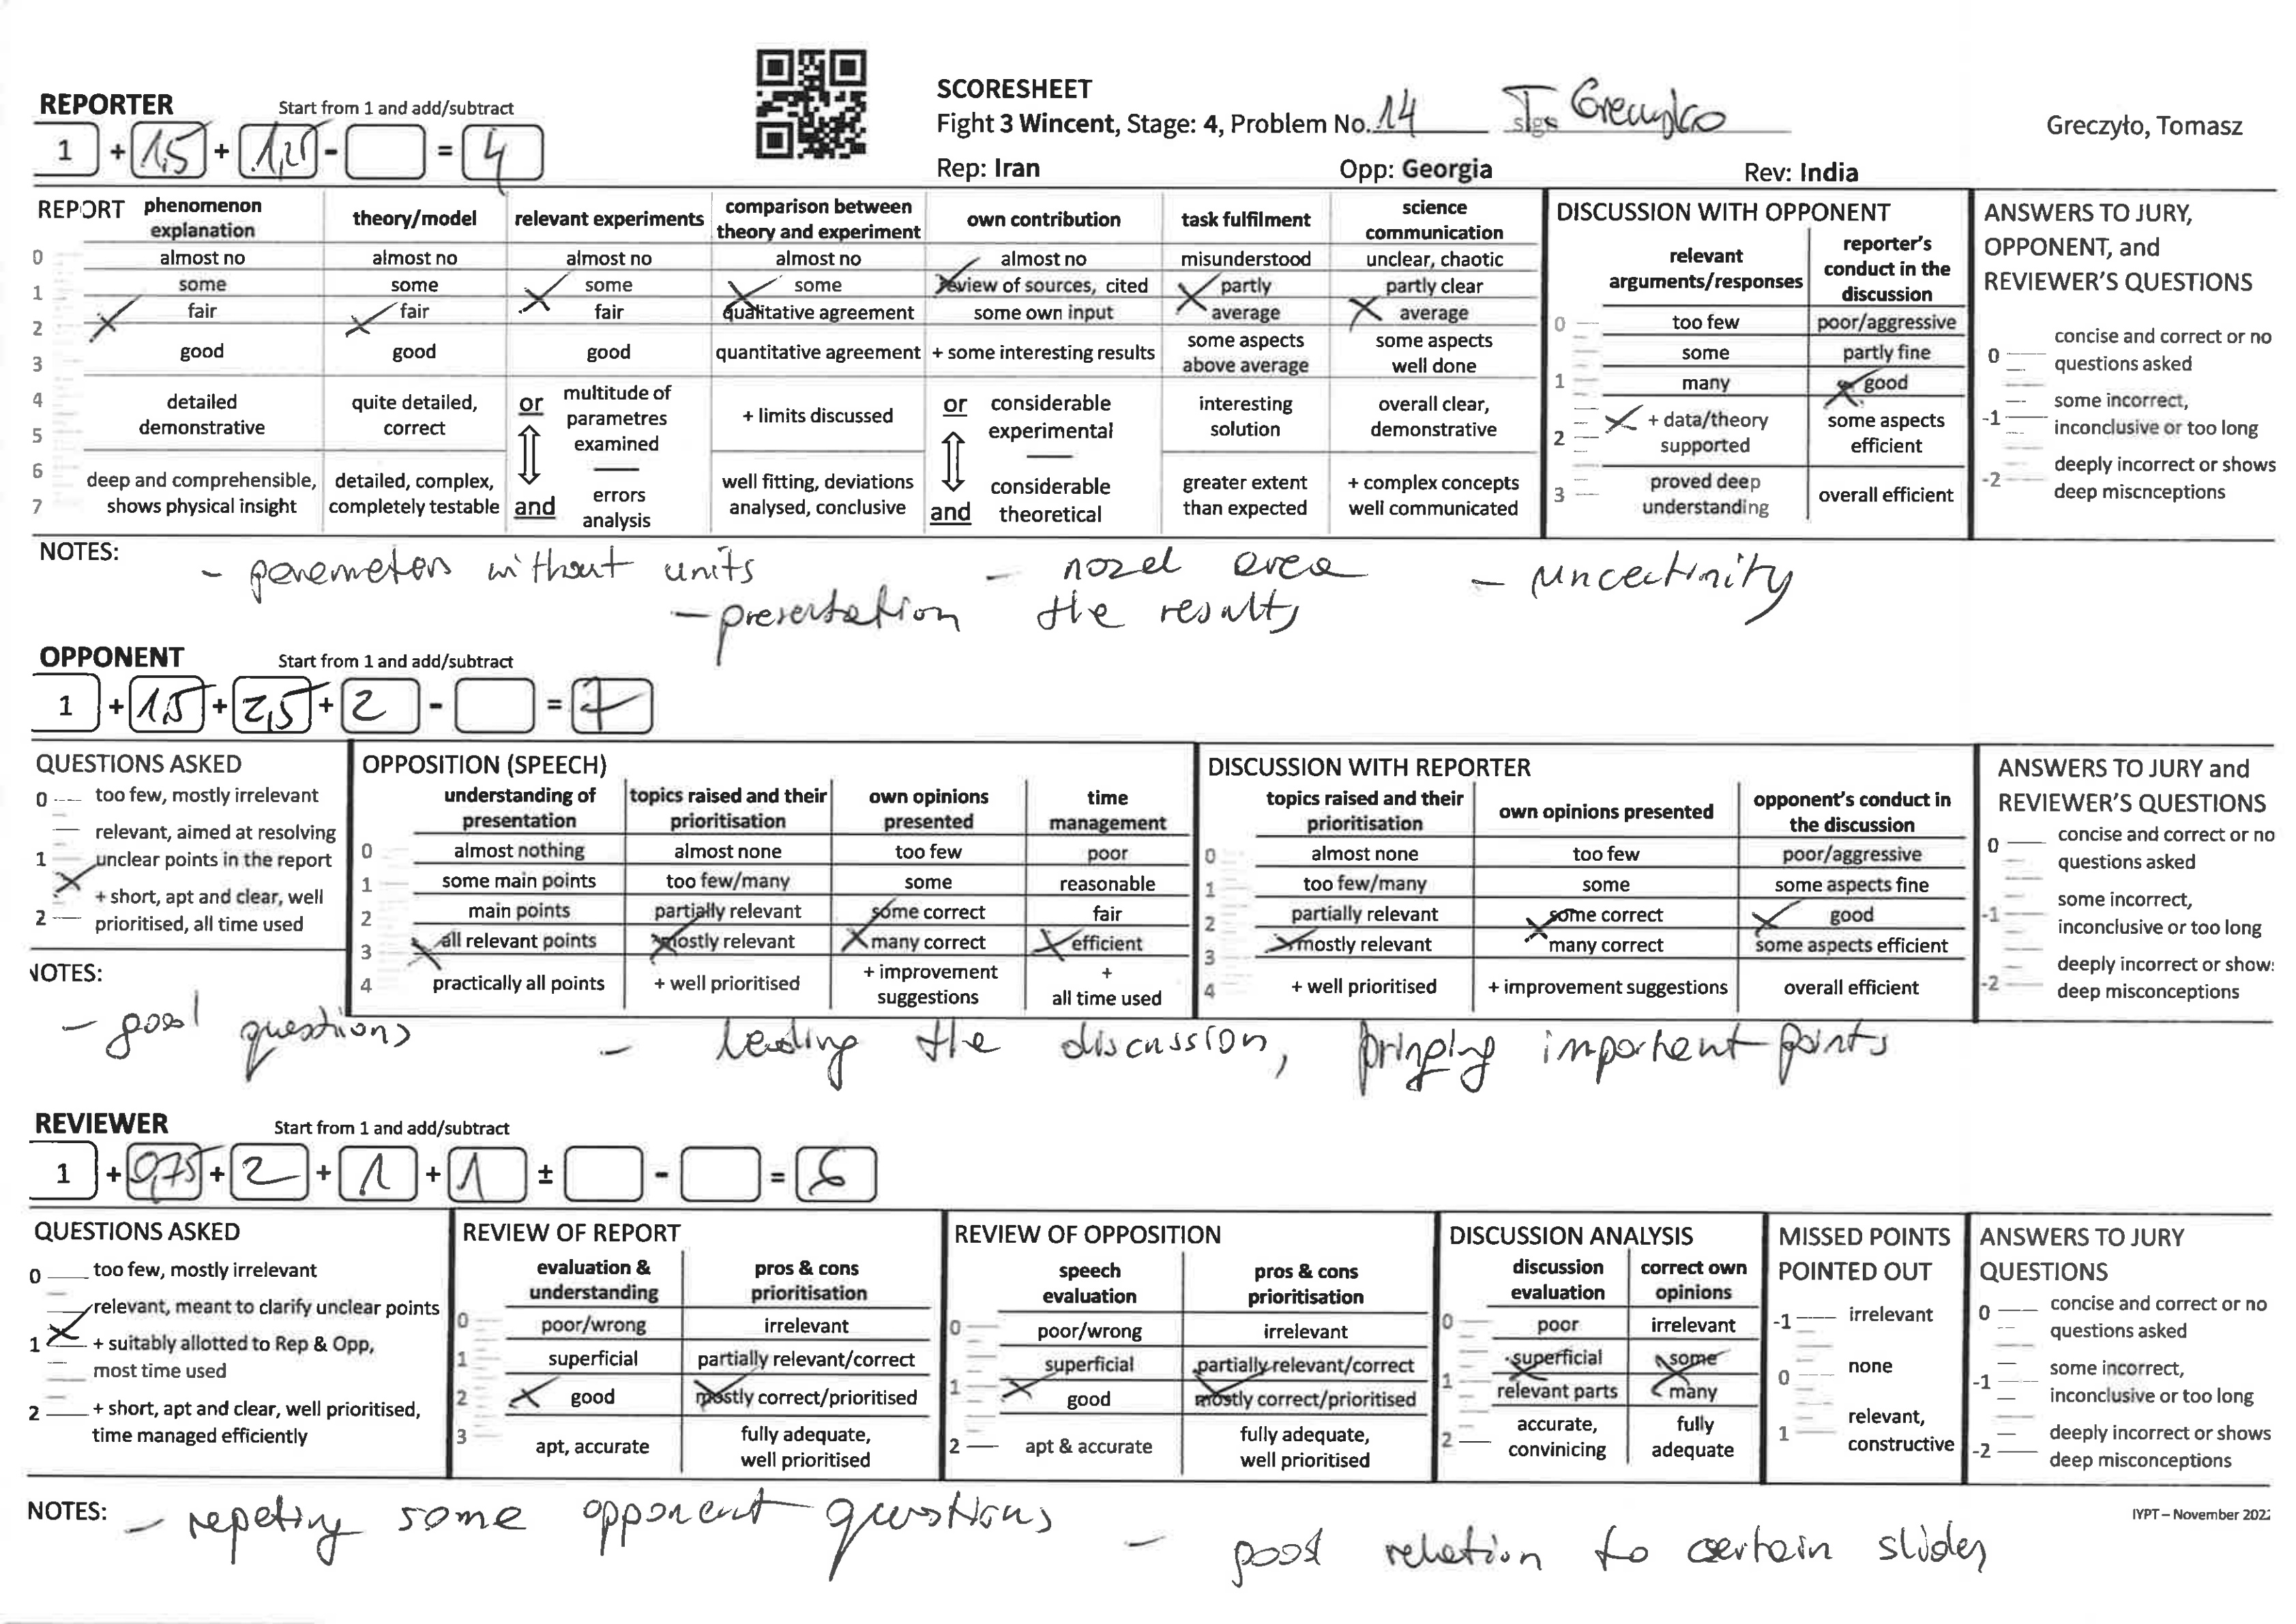 SCORESHEET
REPORTER Start from 1 and add/subtract
Fight 3 Wincent, Stage: 4, Problem No. 14
Greczyło, Tomasz
1 + 1,5 + 1,25 - = 4
Rep: Iran Opp: Georgia Rev: India
REPORT
phenomenon explanation
theory/model
relevant experiments
comparison between theory and experiment
own contribution
task fulfilment
science communication
0 almost no almost no almost no almost no almost no misunderstood unclear, chaotic
1 some some some some review of sources, cited partly partly clear
2 fair fair fair qualitative agreement some own input average average
3 good good good quantitative agreement + some interesting results some aspects above average some aspects well done
4 5 detailed demonstrative quite detailed, correct or multitude of parametres examined + limits discussed or considerable experimental interesting solution overall clear, demonstrative
6 7 deep and comprehensible, shows physical insight detailed, complex, completely testable and errors analysis well fitting, deviations analysed, conclusive and considerable theoretical greater extent than expected + complex concepts well communicated
DISCUSSION WITH OPPONENT
relevant arguments/responses
reporter's conduct in the discussion
0 too few poor/aggressive
some partly fine
1 many good
2 + data/theory supported some aspects efficient
3 proved deep understanding overall efficient
ANSWERS TO JURY, OPPONENT, and REVIEWER'S QUESTIONS
0 concise and correct or no questions asked
-1 some incorrect, inconclusive or too long
-2 deeply incorrect or shows deep miscnceptions
NOTES:
- parameters without units - nozel area - uncertinity
- presentation the results
OPPONENT Start from 1 and add/subtract
1 + 1,5 + 2,5 + 2 - = 7
QUESTIONS ASKED
0 too few, mostly irrelevant
relevant, aimed at resolving
1 unclear points in the report
+ short, apt and clear, well
2 prioritised, all time used
OPPOSITION (SPEECH)
understanding of presentation
topics raised and their prioritisation
own opinions presented
time management
0 almost nothing almost none too few poor
1 some main points too few/many some reasonable
2 main points partially relevant some correct fair
3 all relevant points mostly relevant many correct efficient
4 practically all points + well prioritised + improvement suggestions + all time used
DISCUSSION WITH REPORTER
topics raised and their prioritisation
own opinions presented
opponent's conduct in the discussion
0 almost none too few poor/aggressive
1 too few/many some some aspects fine
2 partially relevant some correct good
3 mostly relevant many correct some aspects efficient
4 + well prioritised + improvement suggestions overall efficient
ANSWERS TO JURY and REVIEWER'S QUESTIONS
0 concise and correct or no questions asked
-1 some incorrect, inconclusive or too long
-2 deeply incorrect or show: deep misconceptions
NOTES:
- good questions - leading the discussion, bringing important points
REVIEWER Start from 1 and add/subtract
1 + 0,75 + 2 + 1 + 1 ± - = 6
QUESTIONS ASKED
0 too few, mostly irrelevant
relevant, meant to clarify unclear points
1 + suitably allotted to Rep & Opp,
most time used
2 + short, apt and clear, well prioritised,
time managed efficiently
REVIEW OF REPORT
evaluation & understanding
pros & cons prioritisation
0 poor/wrong irrelevant
1 superficial partially relevant/correct
2 good mostly correct/prioritised
3 apt, accurate fully adequate, well prioritised
REVIEW OF OPPOSITION
speech evaluation
pros & cons prioritisation
0 poor/wrong irrelevant
superficial partially relevant/correct
1 good mostly correct/prioritised
2 apt & accurate fully adequate, well prioritised
DISCUSSION ANALYSIS
discussion evaluation
correct own opinions
0 poor irrelevant
superficial some
1 relevant parts many
2 accurate, convinicing fully adequate
MISSED POINTS POINTED OUT
-1 irrelevant
0 none
1 relevant, constructive
ANSWERS TO JURY QUESTIONS
0 concise and correct or no questions asked
-1 some incorrect, inconclusive or too long
-2 deeply incorrect or shows deep misconceptions
NOTES:
- repeting some opponent questions
- good relation to certain slides
IYPT – November 202